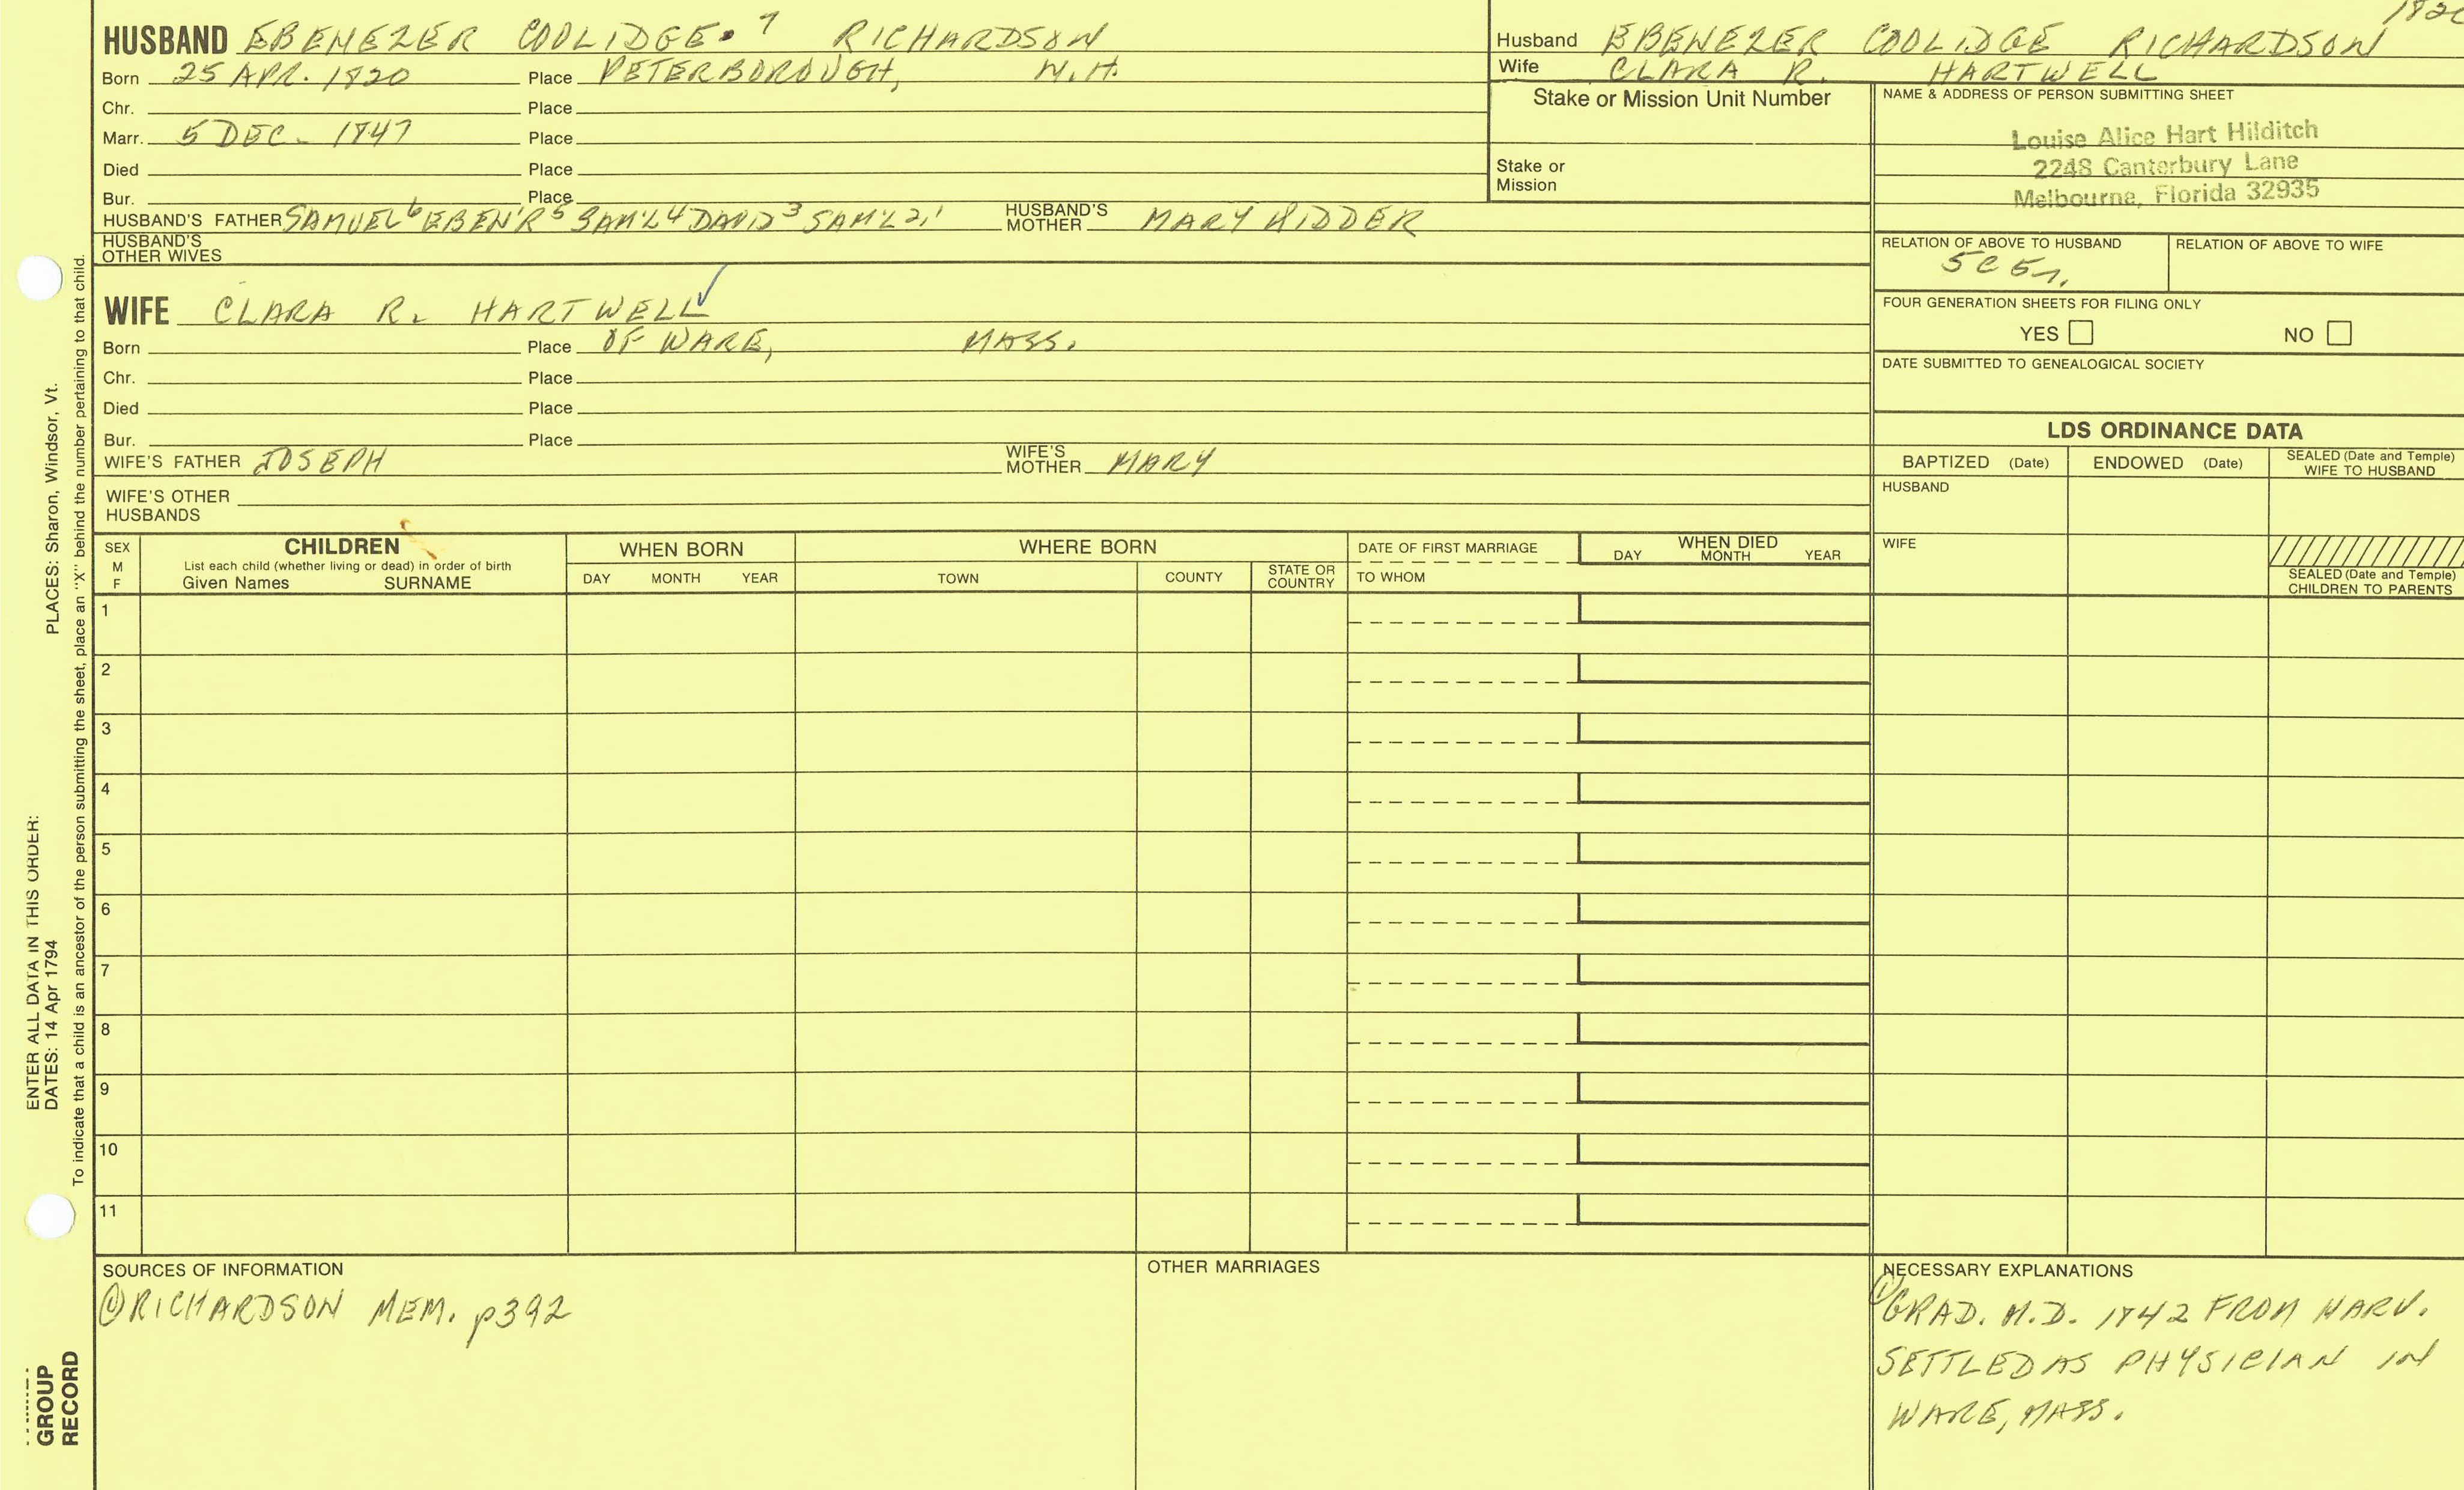 1820
HUSBAND EBENEZER COOLIDGE 7 RICHARDSON
Born 25 APR. 1820 Place PETERBOROUGH, N.H.
Chr. Place
Marr. 5 DEC. 1847 Place
Died Place
Bur. Place
HUSBAND'S FATHER SAMUEL 6 EBEN'R 5 SAM'L 4 DAVID 3 SAM'L 2,1 HUSBAND'S MOTHER MARY KIDDER
HUSBAND'S OTHER WIVES
WIFE CLARA R. HARTWELL ✓
Born Place OF WARE, MASS.
Chr. Place
Died Place
Bur. Place
WIFE'S FATHER JOSEPH WIFE'S MOTHER MARY
WIFE'S OTHER HUSBANDS
Husband EBENEZER COOLIDGE RICHARDSON
Wife CLARA R. HARTWELL
Stake or Mission Unit Number
Stake or
Mission
NAME & ADDRESS OF PERSON SUBMITTING SHEET
Louise Alice Hart Hilditch
2248 Canterbury Lane
Melbourne, Florida 32935
RELATION OF ABOVE TO HUSBAND RELATION OF ABOVE TO WIFE
5C
FOUR GENERATION SHEETS FOR FILING ONLY
YES NO
DATE SUBMITTED TO GENEALOGICAL SOCIETY
LDS ORDINANCE DATA
BAPTIZED (Date) ENDOWED (Date) SEALED (Date and Temple) WIFE TO HUSBAND
HUSBAND
WIFE
SEALED (Date and Temple)
CHILDREN TO PARENTS
SEX
M
F
CHILDREN
List each child (whether living or dead) in order of birth
Given Names SURNAME
WHEN BORN
DAY MONTH YEAR
WHERE BORN
TOWN COUNTY STATE OR COUNTRY
DATE OF FIRST MARRIAGE
TO WHOM
WHEN DIED
DAY MONTH YEAR
1
2
3
4
5
6
7
8
9
10
11
SOURCES OF INFORMATION
① RICHARDSON MEM. p392
OTHER MARRIAGES
NECESSARY EXPLANATIONS
① GRAD. M.D. 1842 FROM HARV.
SETTLED AS PHYSICIAN IN
WARE, MASS.
ENTER ALL DATA IN THIS ORDER:
DATES: 14 Apr 1794 PLACES: Sharon, Windsor, Vt.
To indicate that a child is an ancestor of the person submitting the sheet, place an "X" behind the number pertaining to that child.
GROUP
RECORD